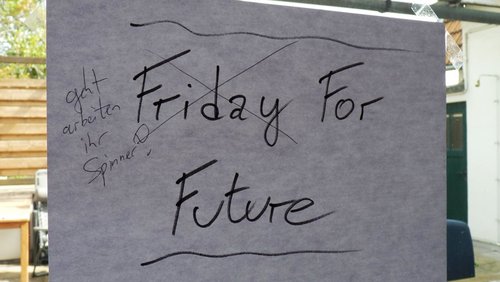 Friday For
Future
geht
arbeiten
ihr
Spinner!